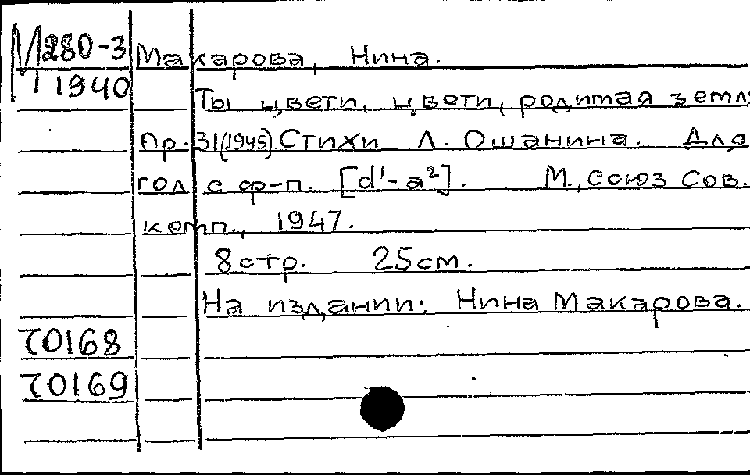 М280-3 Макарова, Нина.
1940
Ты цвети, цвети, родимая земл
Пр. 31(1945). Стихи Л. Ошанина. Для
гол с ф-п. [d¹-a²]. М., Союз Сов.
комп., 1947.
8 стр. 25 см.
На издании: Нина Макарова.
70168
70169